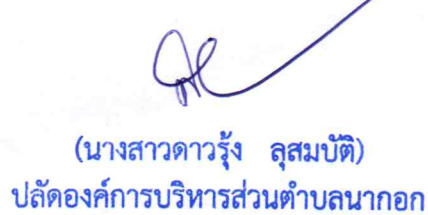 (นางสาวดาวรุ้ง ลุสมบัติ)
ปลัดองค์การบริหารส่วนตำบลนากอก